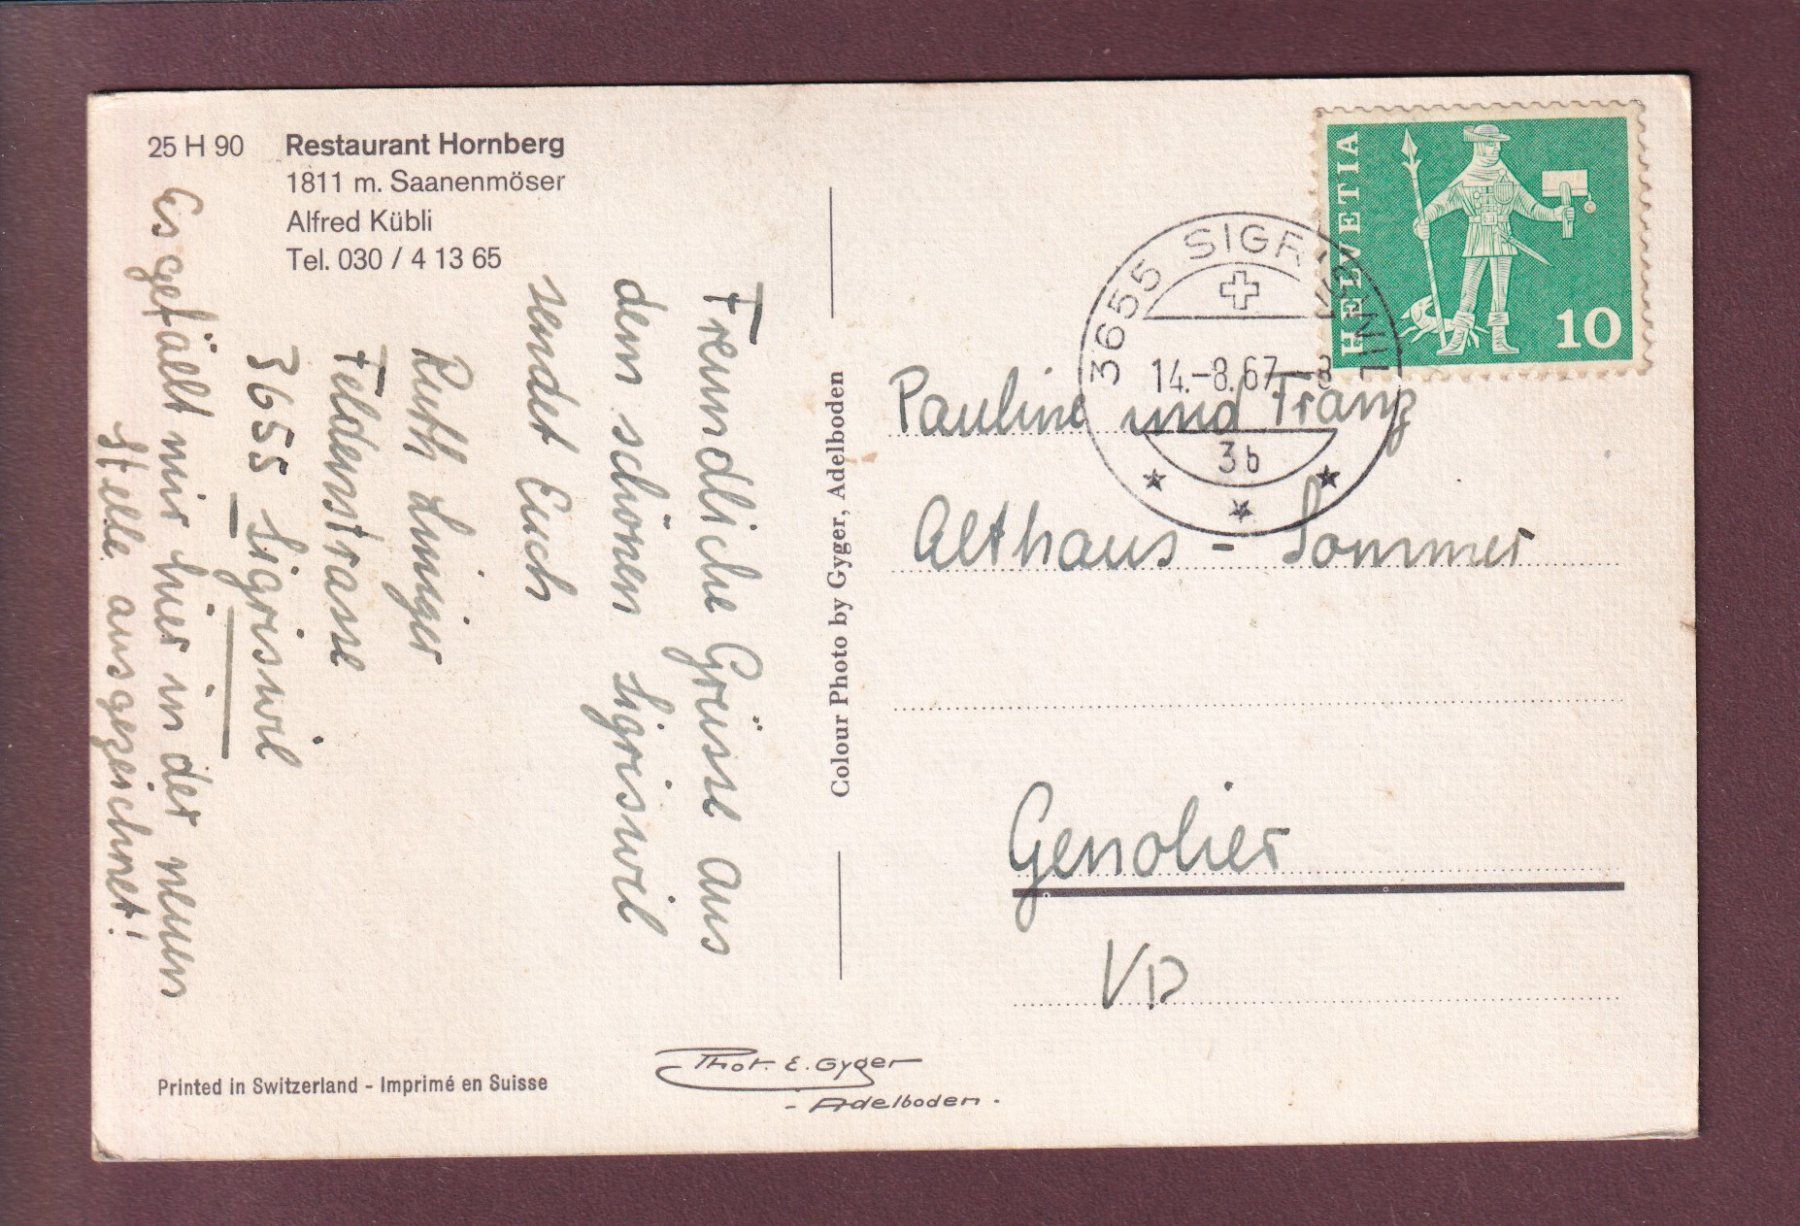 25 H 90 Restaurant Hornberg
1811 m. Saanenmöser
Alfred Kübli
Tel. 030 / 4 13 65
Freundliche Grüsse aus
dem schönen Sigriswil
sendet Euch
Ruth Liniger
Feldenstrasse
3655 Sigriswil
Es gefällt mir hier in der neuen
Stelle ausgezeichnet!
Colour Photo by Gyger, Adelboden
HELVETIA
10
3655 SIGRISWIL
14.-8.67-8
3b
Pauline und Franz
Althaus - Sommer
Genolier
VD
Printed in Switzerland - Imprimé en Suisse
Phot. E. Gyger
- Adelboden -